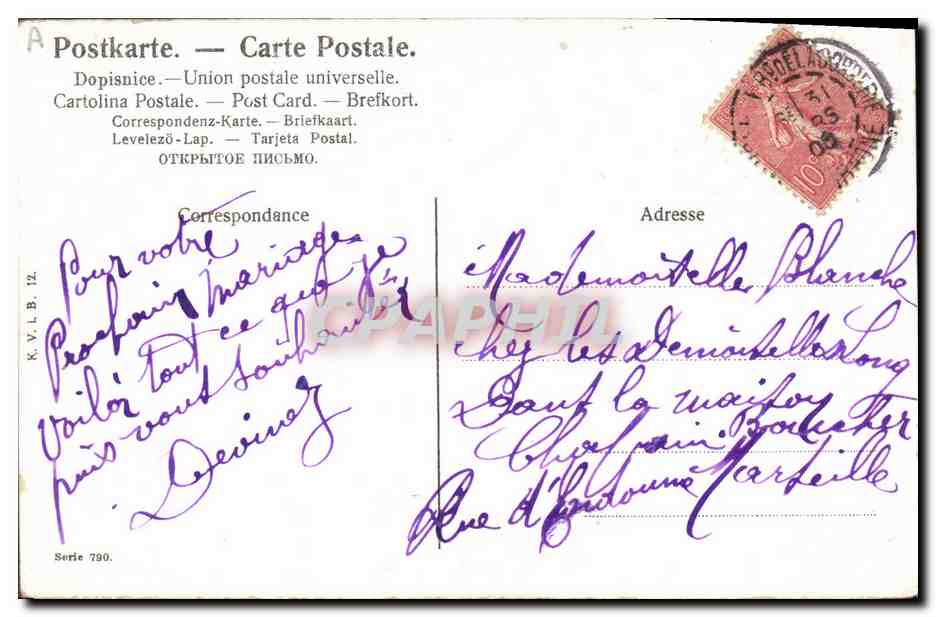 A
Postkarte. — Carte Postale.
Dopisnice. — Union postale universelle.
Cartolina Postale. — Post Card. — Brefkort.
Correspondenz-Karte. — Briefkaart.
Levelező-Lap. — Tarjeta Postal.
ОТКРЫТОЕ ПИСЬМО.
Correspondance
Pour votre
Prochain Mariage
Voilà tout ce que je
puis vous souhaiter
Devinez
K. V. i. B. 12.
Serie 790.
CPAPHIL
10
31
05
Adresse
Mademoiselle Blanche
chez les Demoiselles Long
Dans la maison
Boucher
Rue d'Endoume Marseille